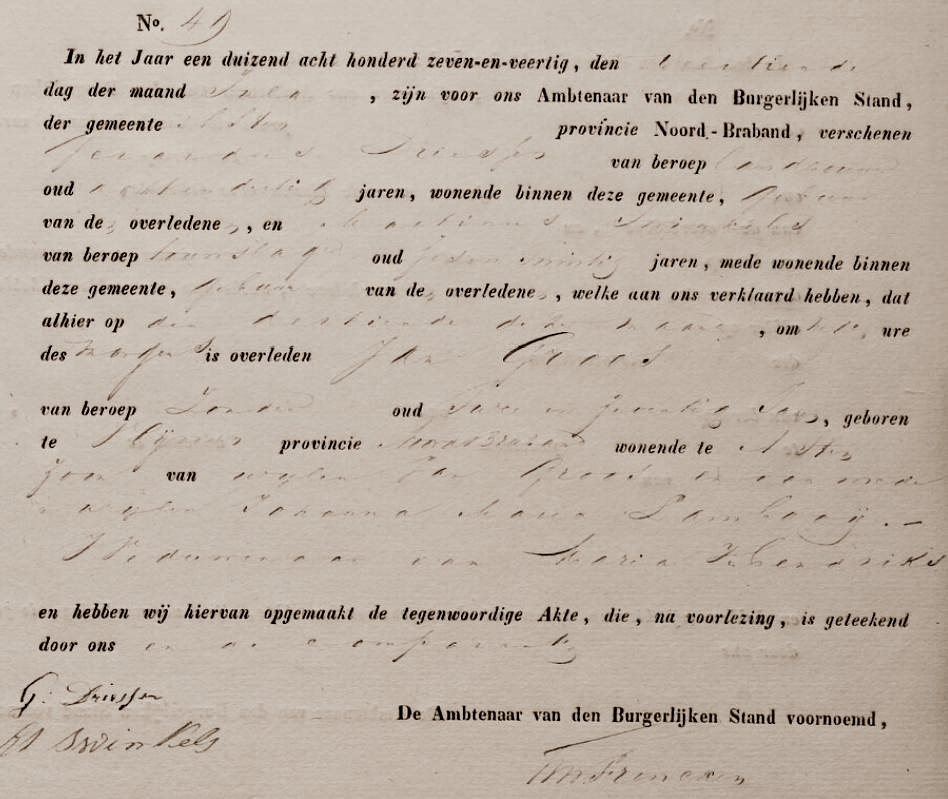 No. 49
In het Jaar een duizend acht honderd zeven-en-veertig, den
dag der maand , zijn voor ons Ambtenaar van den Burgerlijken Stand,
der gemeente Asten provincie Noord-Braband, verschenen
Driessen van beroep landbouwer
oud jaren, wonende binnen deze gemeente, gebuur
van de overledene, en Martinus Swinkels
van beroep oud jaren, mede wonende binnen
deze gemeente, gebuur van de overledene, welke aan ons verklaard hebben, dat
alhier op den dertiende dezer maand, om ure
des morgens is overleden Jan Groos
van beroep Zonder oud Twee en Zeventig Jaar, geboren
te provincie Noordbraband wonende te Asten
Zoon van wylen Jan Groos en van mede
wylen Johanna Maria
Weduwenaar van Maria Hendriks
en hebben wij hiervan opgemaakt de tegenwoordige Akte, die, na voorlezing, is geteekend
door ons en de comparanten
G: Driessen
M Swinkels
De Ambtenaar van den Burgerlijken Stand voornoemd,
Frencken